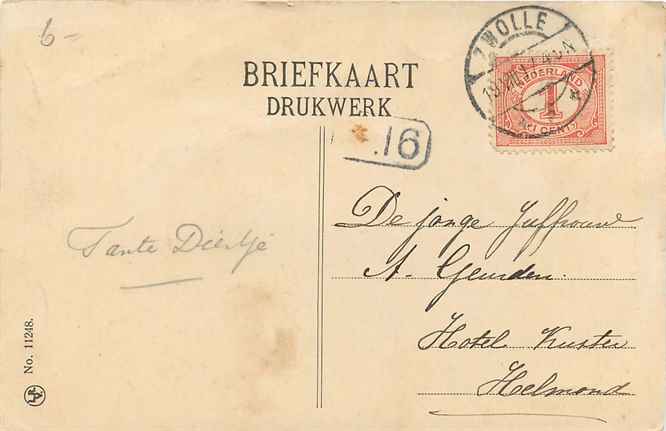 6-
ZWOLLE
NEDERLAND
1
CENT
BRIEFKAART
DRUKWERK
.16
De jonge Juffrouw
A. Geurden.
Hotel Kuster
Helmond
Tante Diertje
No. 11248.